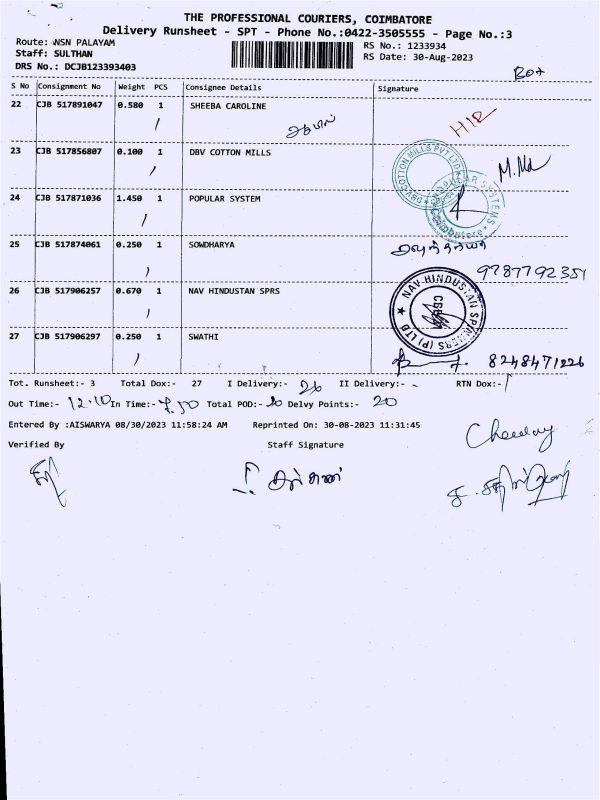 THE PROFESSIONAL COURIERS, COIMBATORE
Delivery Runsheet - SPT - Phone No.:0422-3505555 - Page No.:3
Route: NSN PALAYAM
Staff: SULTHAN
DRS No.: DCJB123393403
RS No.: 1233934
RS Date: 30-Aug-2023
Box
S No Consignment No Weight PCS Consignee Details Signature
22 CJB 517891047 0.580 1 SHEEBA CAROLINE
HIR
23 CJB 517856807 0.100 1 DBV COTTON MILLS
24 CJB 517871036 1.450 1 POPULAR SYSTEM
25 CJB 517874061 0.250 1 SOWDHARYA
9787792351
26 CJB 517906257 0.670 1 NAV HINDUSTAN SPRS
NAV HINDUSTAN SPINNERS (P) LTD
27 CJB 517906297 0.250 1 SWATHI
8248471226
Tot. Runsheet:- 3 Total Dox:- 27 I Delivery:- 26 II Delivery:- - RTN Dox:- 1
Out Time:- 12.10 In Time:- 7.50 Total POD:- 20 Delvy Points:- 20
Entered By :AISWARYA 08/30/2023 11:58:24 AM Reprinted On: 30-08-2023 11:31:45
Verified By Staff Signature